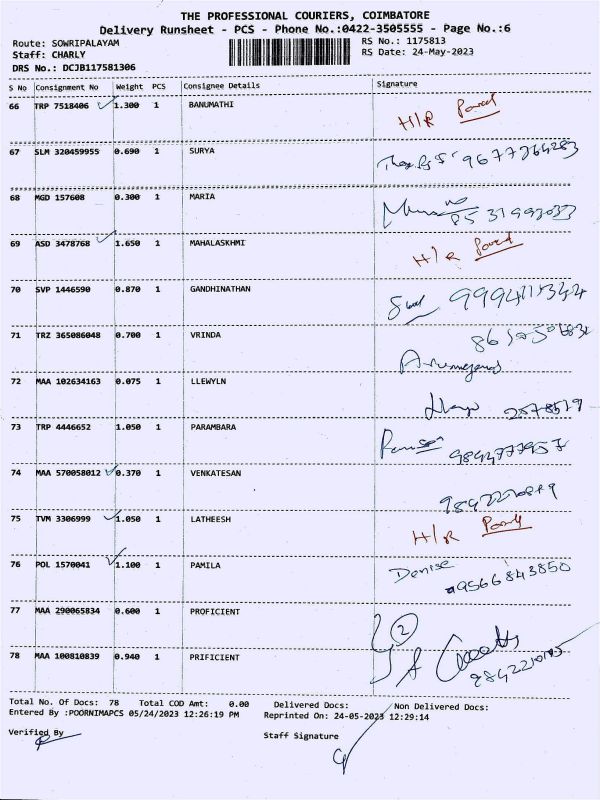 THE PROFESSIONAL COURIERS, COIMBATORE
Delivery Runsheet - PCS - Phone No.:0422-3505555 - Page No.:6
Route: SOWRIPALAYAM RS No.: 1175813
Staff: CHARLY RS Date: 24-May-2023
DRS No.: DCJB117581306
S No Consignment No Weight PCS Consignee Details Signature
66 TRP 7518406 1.300 1 BANUMATHI H/R
67 SLM 320459955 0.690 1 SURYA
68 MGD 157608 0.300 1 MARIA
69 ASD 3478768 1.650 1 MAHALASKHMI H/R
70 SVP 1446590 0.870 1 GANDHINATHAN
71 TRZ 365086048 0.700 1 VRINDA
72 MAA 102634163 0.075 1 LLEWYLN
2578519
73 TRP 4446652 1.050 1 PARAMBARA
9894777957
74 MAA 570058012 0.370 1 VENKATESAN
75 TVM 3306999 1.050 1 LATHEESH H/R
76 POL 1570041 1.100 1 PAMILA Denise
9566843850
77 MAA 290065834 0.600 1 PROFICIENT
2
78 MAA 100810839 0.940 1 PRIFICIENT
Total No. Of Docs: 78 Total COD Amt: 0.00 Delivered Docs: Non Delivered Docs:
Entered By :POORNIMAPCS 05/24/2023 12:26:19 PM Reprinted On: 24-05-2023 12:29:14
Verified By
Staff Signature